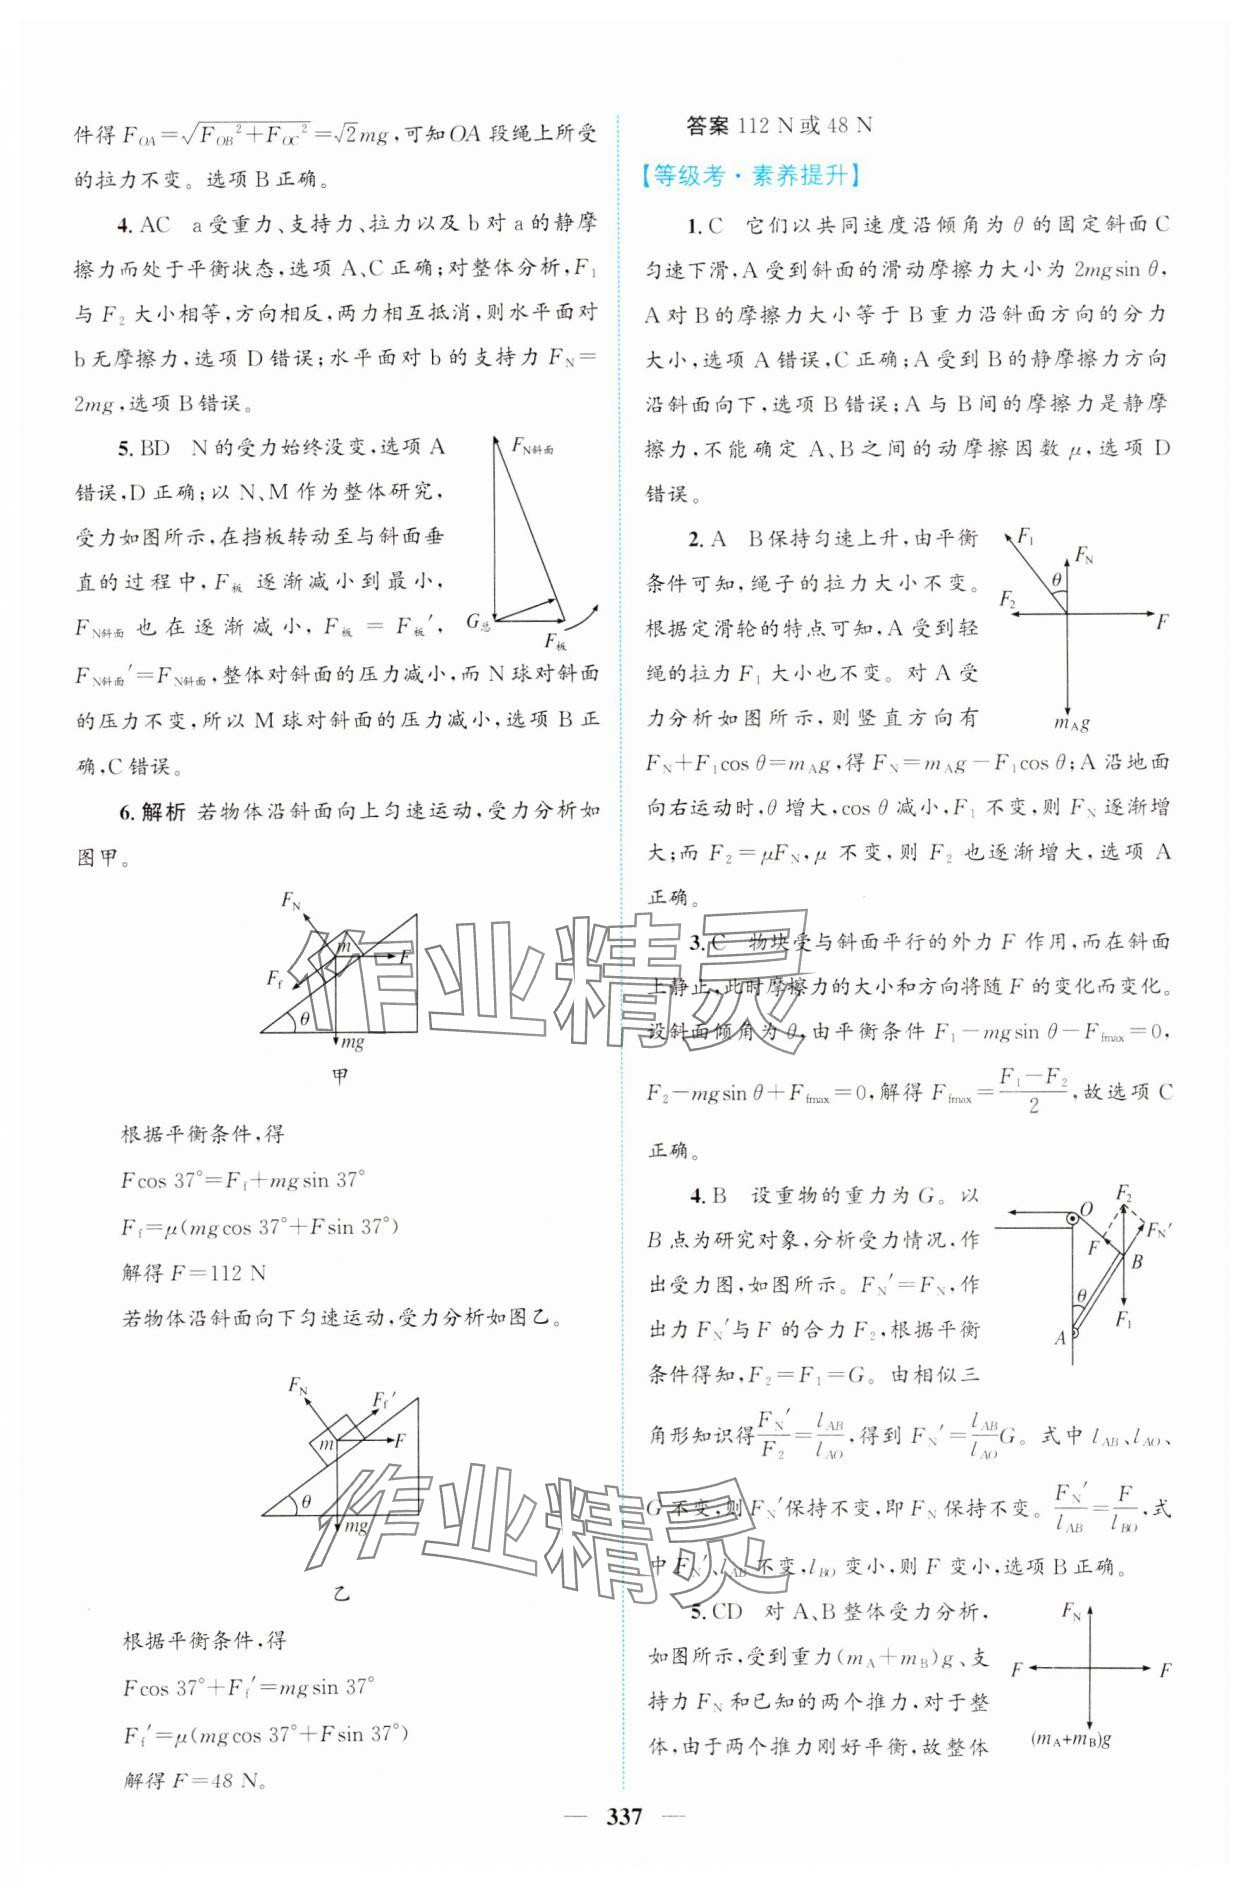 件得 F_OA=√(F_OB²+F_OC²)=√2mg,可知OA 段绳上所受
的拉力不变。选项 B 正确。
4. AC a 受重力、支持力、拉力以及 b 对 a 的静摩
擦力而处于平衡状态,选项 A、C 正确;对整体分析,F₁
与 F₂ 大小相等,方向相反,两力相互抵消,则水平面对
b 无摩擦力,选项 D 错误;水平面对 b 的支持力 F_N=
2mg,选项 B 错误。
5. BD N 的受力始终没变,选项 A
错误,D 正确;以 N、M 作为整体研究,
受力如图所示,在挡板转动至与斜面垂
直的过程中,F板 逐渐减小到最小,
F_N斜面 也在逐渐减小,F板 = F板′,
F_N斜面′=F_N斜面,整体对斜面的压力减小,而 N 球对斜面
的压力不变,所以 M 球对斜面的压力减小,选项 B 正
确,C 错误。
F_N斜面
G总
F板
6. 解析 若物体沿斜面向上匀速运动,受力分析如
图甲。
F_N
m
F
F_f
θ
mg
甲
根据平衡条件,得
Fcos 37°=F_f+mgsin 37°
F_f=μ(mgcos 37°+Fsin 37°)
解得 F=112 N
若物体沿斜面向下匀速运动,受力分析如图乙。
F_N
F_f′
m
F
θ
mg
乙
根据平衡条件,得
Fcos 37°+F_f′=mgsin 37°
F_f′=μ(mgcos 37°+Fsin 37°)
解得 F=48 N。
答案 112 N 或 48 N
【等级考·素养提升】
1. C 它们以共同速度沿倾角为 θ 的固定斜面 C
匀速下滑,A 受到斜面的滑动摩擦力大小为 2mgsin θ,
A 对 B 的摩擦力大小等于 B 重力沿斜面方向的分力
大小,选项 A 错误,C 正确;A 受到 B 的静摩擦力方向
沿斜面向下,选项 B 错误;A 与 B 间的摩擦力是静摩
擦力,不能确定 A、B 之间的动摩擦因数 μ,选项 D
错误。
2. A B 保持匀速上升,由平衡
条件可知,绳子的拉力大小不变。
根据定滑轮的特点可知,A 受到轻
绳的拉力 F₁ 大小也不变。对 A 受
力分析如图所示,则竖直方向有
F₁
F_N
θ
F₂
F
m_Ag
F_N+F₁cos θ=m_Ag,得 F_N=m_Ag-F₁cos θ;A 沿地面
向右运动时,θ 增大,cos θ 减小,F₁ 不变,则 F_N 逐渐增
大;而 F₂=μF_N,μ 不变,则 F₂ 也逐渐增大,选项 A
正确。
3. C 物块受与斜面平行的外力 F 作用,而在斜面
上静止,此时摩擦力的大小和方向将随 F 的变化而变化。
设斜面倾角为 θ,由平衡条件 F₁-mgsin θ-F_fmax=0,
F₂-mgsin θ+F_fmax=0,解得 F_fmax=(F₁-F₂)/2,故选项 C
正确。
4. B 设重物的重力为 G。以
B 点为研究对象,分析受力情况,作
出受力图,如图所示。F_N′=F_N,作
出力 F_N′与 F 的合力 F₂,根据平衡
条件得知,F₂=F₁=G。由相似三
F₂
O
F_N′
F
B
θ
F₁
A
角形知识得F_N′/F₂=l_AB/l_AO,得到 F_N′=(l_AB/l_AO)G。式中 l_AB、l_AO、
G 不变,则 F_N′保持不变,即 F_N 保持不变。F_N′/l_AB=F/l_BO,式
中 F_N′、l_AB 不变,l_BO 变小,则 F 变小,选项 B 正确。
5. CD 对 A、B 整体受力分析,
如图所示,受到重力(m_A+m_B)g、支
持力 F_N 和已知的两个推力,对于整
体,由于两个推力刚好平衡,故整体
F_N
F
F
(m_A+m_B)g
作业精灵
作业精灵
— 337 —